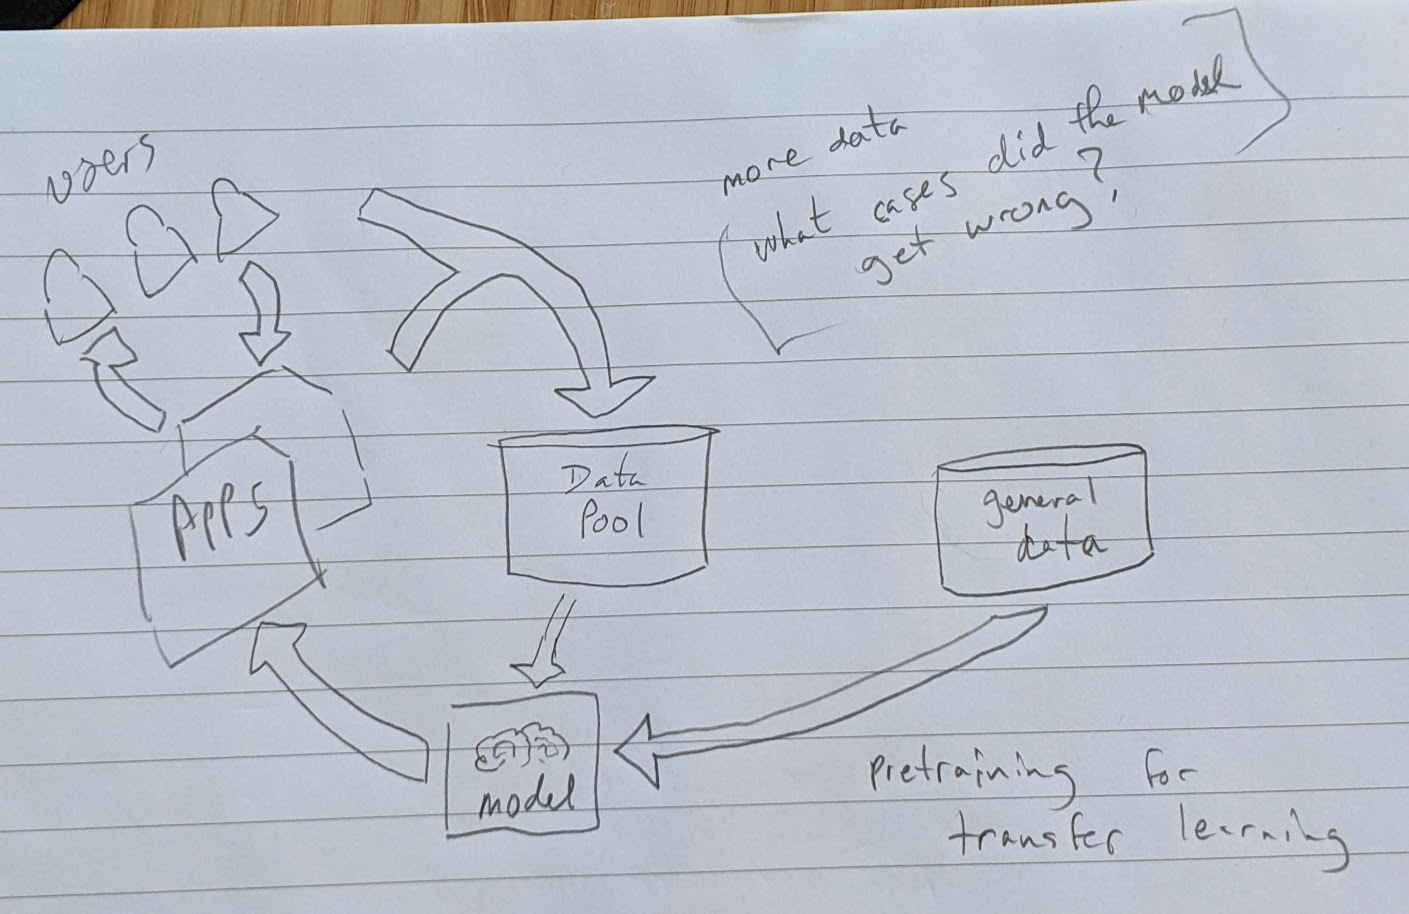 users
more data
what cases did the model
get wrong?
APPS
Data
Pool
general
data
model
pretraining for
transfer learning